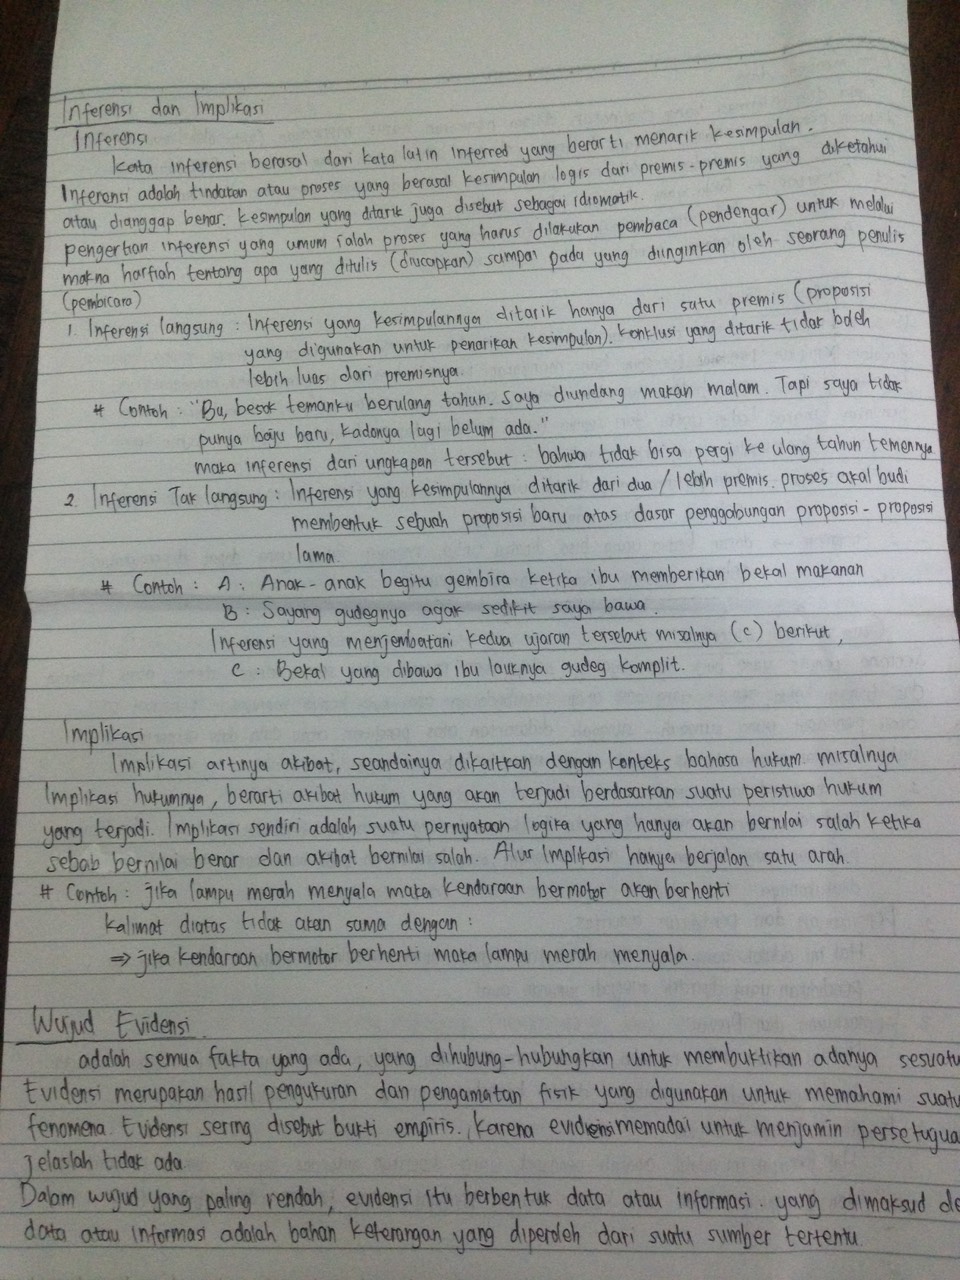 Inferensi dan Implikasi
Inferensi
Kata inferensi berasal dari kata latin inferred yang berarti menarik kesimpulan.
Inferensi adalah tindakan atau proses yang berasal kesimpulan logis dari premis-premis yang diketahui
atau dianggap benar. Kesimpulan yang ditarik juga disebut sebagai idiomatik.
pengertian inferensi yang umum ialah proses yang harus dilakukan pembaca (pendengar) untuk melalui
makna harfiah tentang apa yang ditulis (diucapkan) sampai pada yang diinginkan oleh seorang penulis
(pembicara)
1. Inferensi langsung : Inferensi yang kesimpulannya ditarik hanya dari satu premis (proposisi
yang digunakan untuk penarikan kesimpulan). Konklusi yang ditarik tidak boleh
lebih luas dari premisnya.
# Contoh : "Bu, besok temanku berulang tahun. Saya diundang makan malam. Tapi saya tidak
punya baju baru, kadonya lagi belum ada."
maka inferensi dari ungkapan tersebut : bahwa tidak bisa pergi ke ulang tahun temennya.
2. Inferensi Tak langsung : Inferensi yang kesimpulannya ditarik dari dua / lebih premis. proses akal budi
membentuk sebuah proposisi baru atas dasar penggabungan proposisi-proposisi
lama.
# Contoh : A : Anak-anak begitu gembira ketika ibu memberikan bekal makanan
B : Sayang gudegnya agak sedikit saya bawa.
Inferensi yang menjembatani kedua ujaran tersebut misalnya (c) berikut,
C : Bekal yang dibawa ibu lauknya gudeg komplit.
Implikasi
Implikasi artinya akibat, seandainya dikaitkan dengan konteks bahasa hukum. misalnya
Implikasi hukumnya, berarti akibat hukum yang akan terjadi berdasarkan suatu peristiwa hukum
yang terjadi. Implikasi sendiri adalah suatu pernyataan logika yang hanya akan bernilai salah ketika
sebab bernilai benar dan akibat bernilai salah. Alur Implikasi hanya berjalan satu arah.
# Contoh : jika lampu merah menyala maka kendaraan bermotor akan berhenti
kalimat diatas tidak akan sama dengan :
⇒ jika kendaraan bermotor berhenti maka lampu merah menyala.
Wujud Evidensi.
adalah semua fakta yang ada, yang dihubung-hubungkan untuk membuktikan adanya sesuatu
Evidensi merupakan hasil pengukuran dan pengamatan fisik yang digunakan untuk memahami suatu
fenomena. Evidensi sering disebut bukti empiris. Karena evidensi memadai untuk menjamin persetujua
jelaslah tidak ada.
Dalam wujud yang paling rendah, evidensi itu berbentuk data atau informasi. yang dimaksud de
data atau informasi adalah bahan keterangan yang diperoleh dari suatu sumber tertentu.